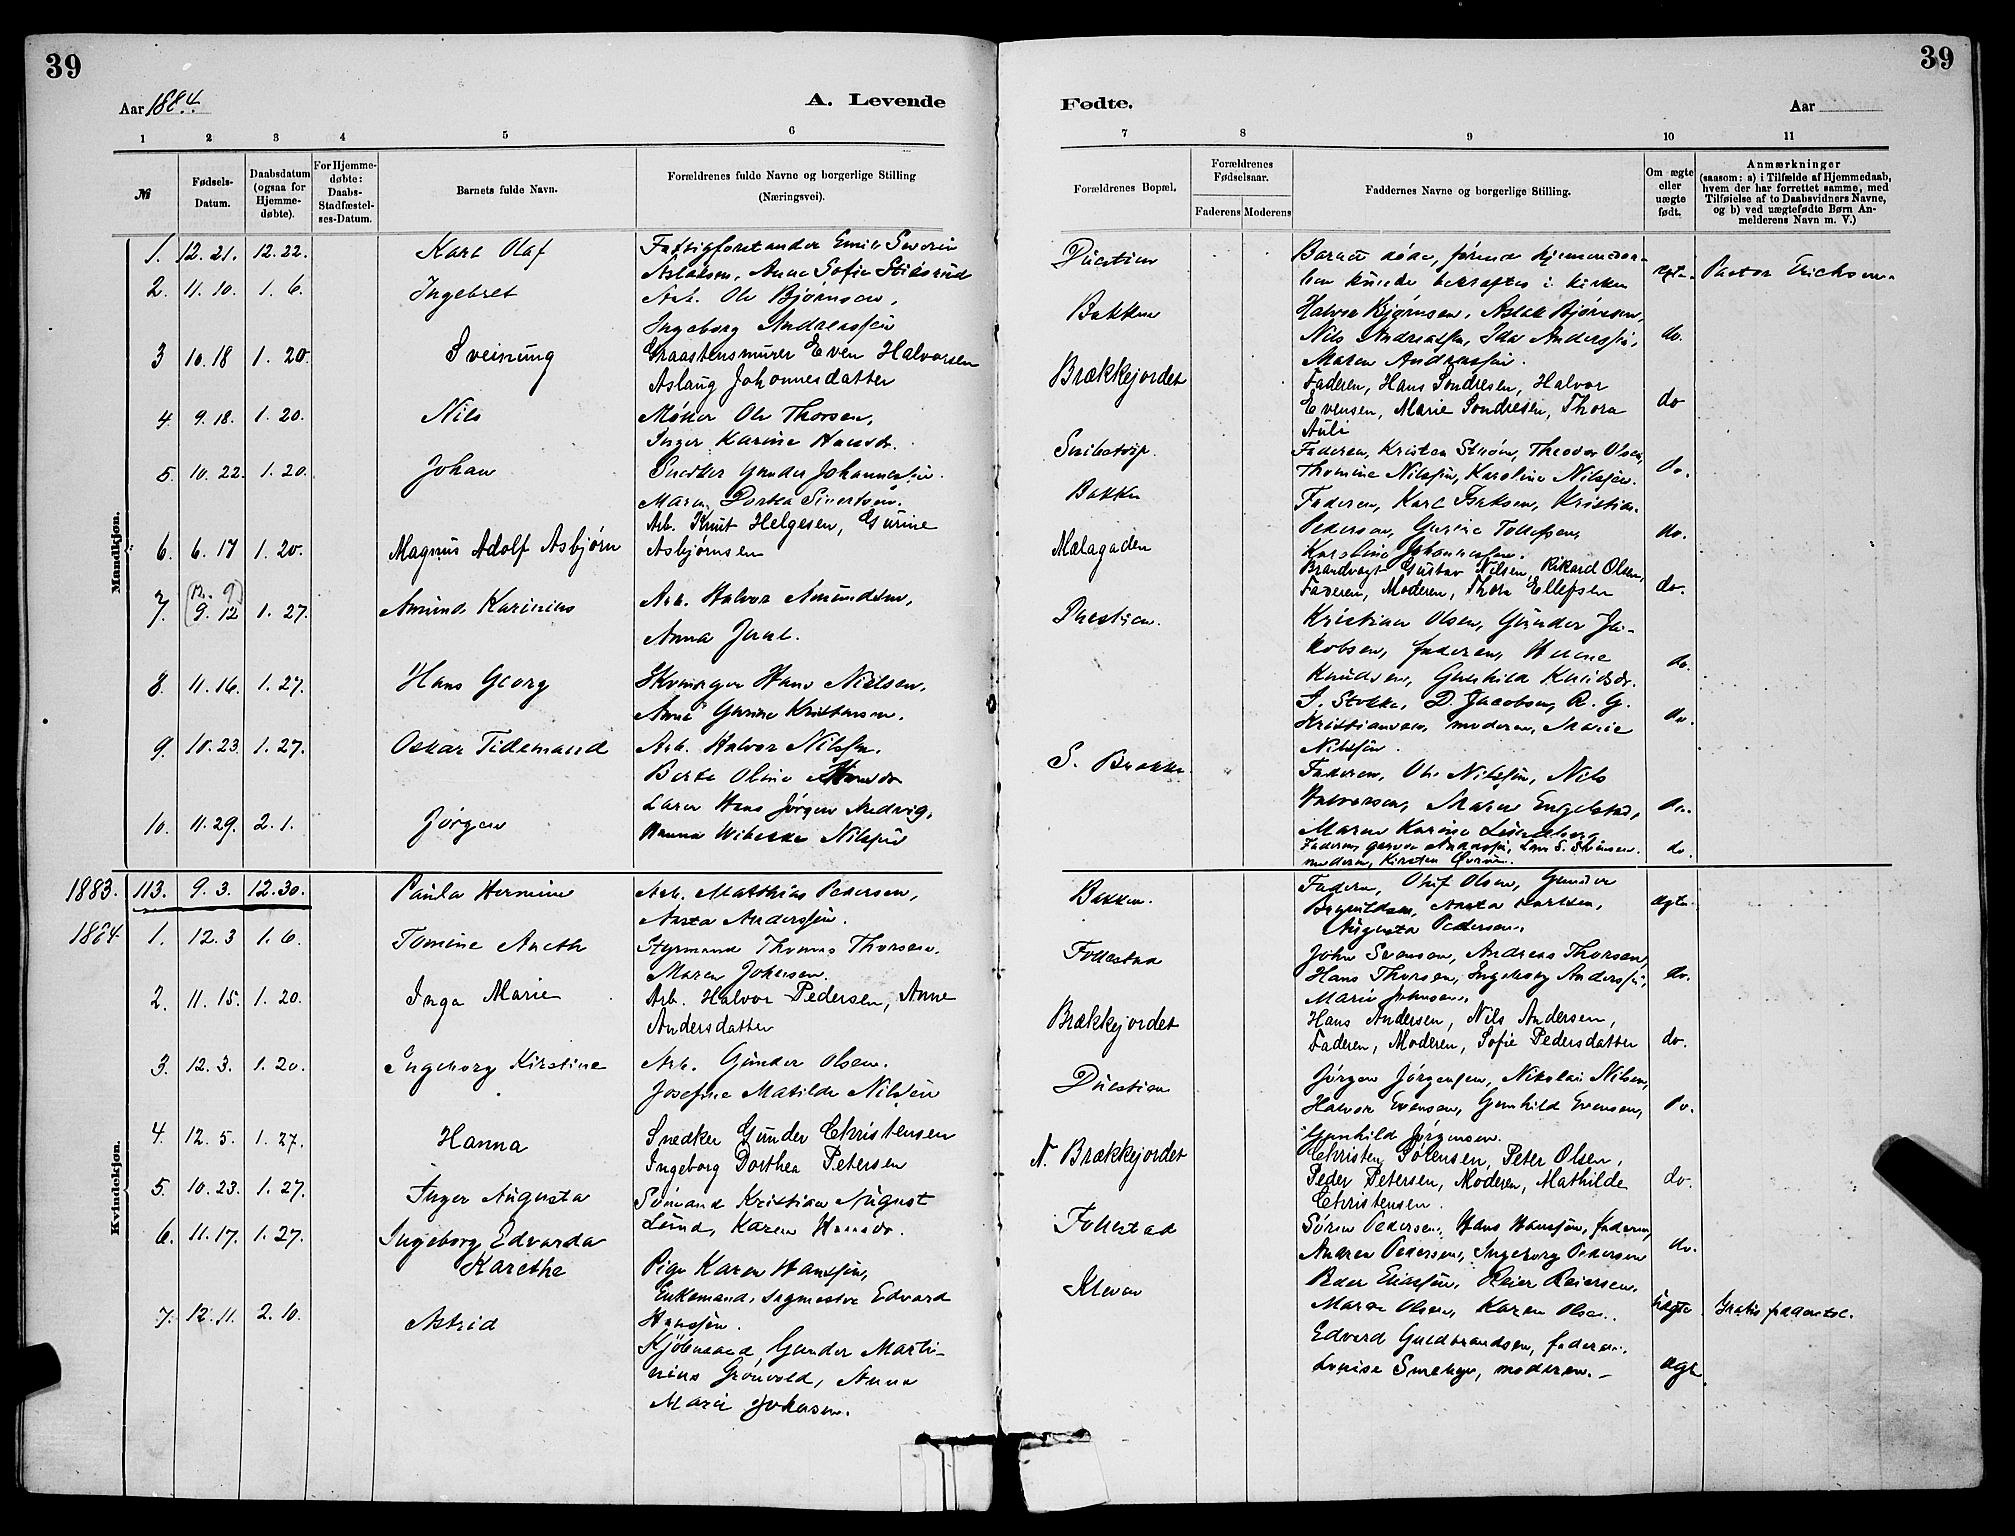 39
39
Aar 1884.
A. Levende
Fødte.
Aar
1 2 3 4 5 6 7 8 9 10 11
№
Fødsels-Datum.
Daabsdatum (ogsaa for Hjemme-døbte).
For Hjemme-døbte: Daabs-Stadfæstel-ses-Datum.
Barnets fulde Navn.
Forældrenes fulde Navne og borgerlige Stilling (Næringsvei).
Forældrenes Bopæl.
Forældrenes Fødselsaar.
Faderens Moderens
Faddernes Navne og borgerlige Stilling.
Om ægte eller uægte født.
Anmærkninger
(saasom: a) i Tilfælde af Hjemmedaab, hvem der har forrettet samme, med Tilføielse af to Daabsvidners Navne, og b) ved uægtefødte Børn An-melderens Navn m. V.)
Mandkjøn.
1. 12. 21. 12. 22. Karl Olaf Fattigforstander Emil Severin
Aslaksen, Anna Sofie
Barnet døde, førend
kunde bekræftes i kirken
ægte. Pastor Erichsen.
2. 11. 10. 1. 6. Ingebret Arb. Ole Bjørnsen,
Ingeborg Andreassen
Bakken
Halvor Bjørnsen, Aslak Bjørnsen,
Nils Andreassen, Ida Anderssen,
Maren Andreassen.
do.
3 10. 18 1. 20. Sveinung Graastensmurer Even Halvorsen
Aslaug Johannesdatter
Brækkejordet
Faderen, Hans Sondresen, Halvor
Evensen, Marie Sondresen, Thora
Auli
do
4. 9. 18. 1. 20. Nils Møller Ole Thorsen,
Inger Karine Hansdr.
Faderen, Kristen Strøm, Theodor Olsen,
Thomine Nilssen, Karoline Nilssen.
do.
5. 10. 22. 1. 20. Johan Snedker Gunder Johannessen.
Maren Dortea Sivertsen.
Bakken
Faderen, Karl Isaksen, Kristian
Pedersen, Gurine Tollefsen,
Karoline Johannessen.
do.
6. 6. 17 1. 20. Magnus Adolf Asbjørn Arb. Knut Helgesen, Gurine
Asbjørnsen
Mælagaden
Brandvagt Gustav Nilsen, Rikard Olsen,
Faderen, Moderen, Thora Ellefsen
do.
7. 9. 12 1. 27. Amund Karinius Arb. Halvor Amundsen,
Anna Juul.
Kristian Olsen, Gunder Ja-
kobsen, faderen,
Knudsen, Gunhild
do.
8. 11. 16. 1. 27. Hans Georg Hans Nielsen,
Anne Gurine Kristensen.
S. Stokke, D. Jacobsen, R. G.
Kristiansen, moderen, Marie
Nilssen.
do
9. 10. 23 1. 27. Oskar Tidemand Arb. Halvor Nilssen.
Berte Oline
S. Brække
Faderen, Ole Nilssen, Nils
Halvorsen, Maren Engelstad,
Maren Karine
do.
10. 11. 29. 2. 1. Jørgen Lærer Hans Jørgen Andvig,
Hanna Wibekka Nilssen
Faderen,
moderen, Kirsten
do.
1883. 113. 9. 3. 12. 30. Paula Hermine Arb. Matthias Pedersen,
Aasta Anderssen.
Bakken.
Faderen, Oluf Olsen, Gunder
Aasta Karlsen,
Augusta Pedersen.
ægte.
1884.
Kvindekjøn.
1. 12. 3 1. 6. Tomine Aneth Styrmand Thomas Thorsen.
Maren Johnsen.
Follestad
John Svensen, Andreas Thorsen,
Hans Thorsen, Ingeborg Anderssen,
Marie Johnsen.
do.
2. 11. 15. 1. 20. Inga Marie Arb. Halvor Pedersen, Anne
Andersdatter
Brækkejordet
Hans Andersen, Nils Andersen,
Faderen, Moderen, Sofie Pedersdatter
do.
3. 12. 3. 1. 20. Ingeborg Kirstine Arb. Gunder Olsen.
Josefine Matilde Nilsen
Jørgen Jørgensen, Nikolai Nilsen,
Halvor Evensen, Gunhild Evensen,
Gunhild Jørgensen.
do.
4. 12. 5. 1. 27. Hanna Snedker Gunder Christensen
Ingeborg Dorthea Petersen
N. Brækkejordet
Christen Sørensen, Peter Olsen,
Peder Petersen, Moderen, Mathilde
Christensen.
do.
5. 10. 23. 1. 27. Inger Augusta Sømand Kristian August
Lund, Karen Hansdr.
Follestad
Søren Pedersen, Hans Hanssen, faderen,
Andrea Pedersen, Ingeborg Pedersen
do.
6. 11. 17. 1. 27. Ingeborg Edvarda
Karethe
Pige Karen Hanssen,
Enkemand, Sagmester Edvard
Hanssen.
Kleven
Peder Eliassen, Reier Reiersen.
Maren Olsen, Karen Olsen.
Uægte
7. 12. 11. 2. 10. Astrid Kjøbmand Gunder Marti-
nius Grönvold, Anna
Marie Johnsen.
Edvard Guldbrandsen, faderen,
Lovise moderen. -
ægte.